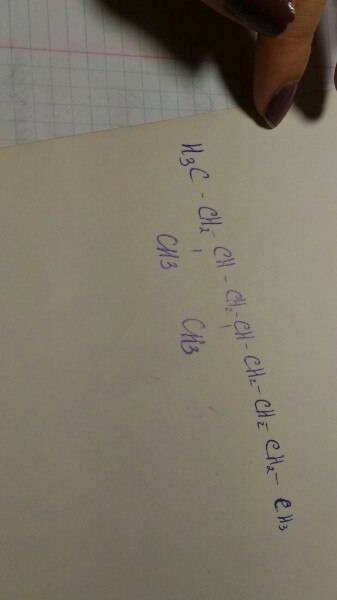 H₃C - CH₂ - CH - CH₂ - CH - CH₂ - CH₂ - CH₂ - CH₃
CH₃ CH₃